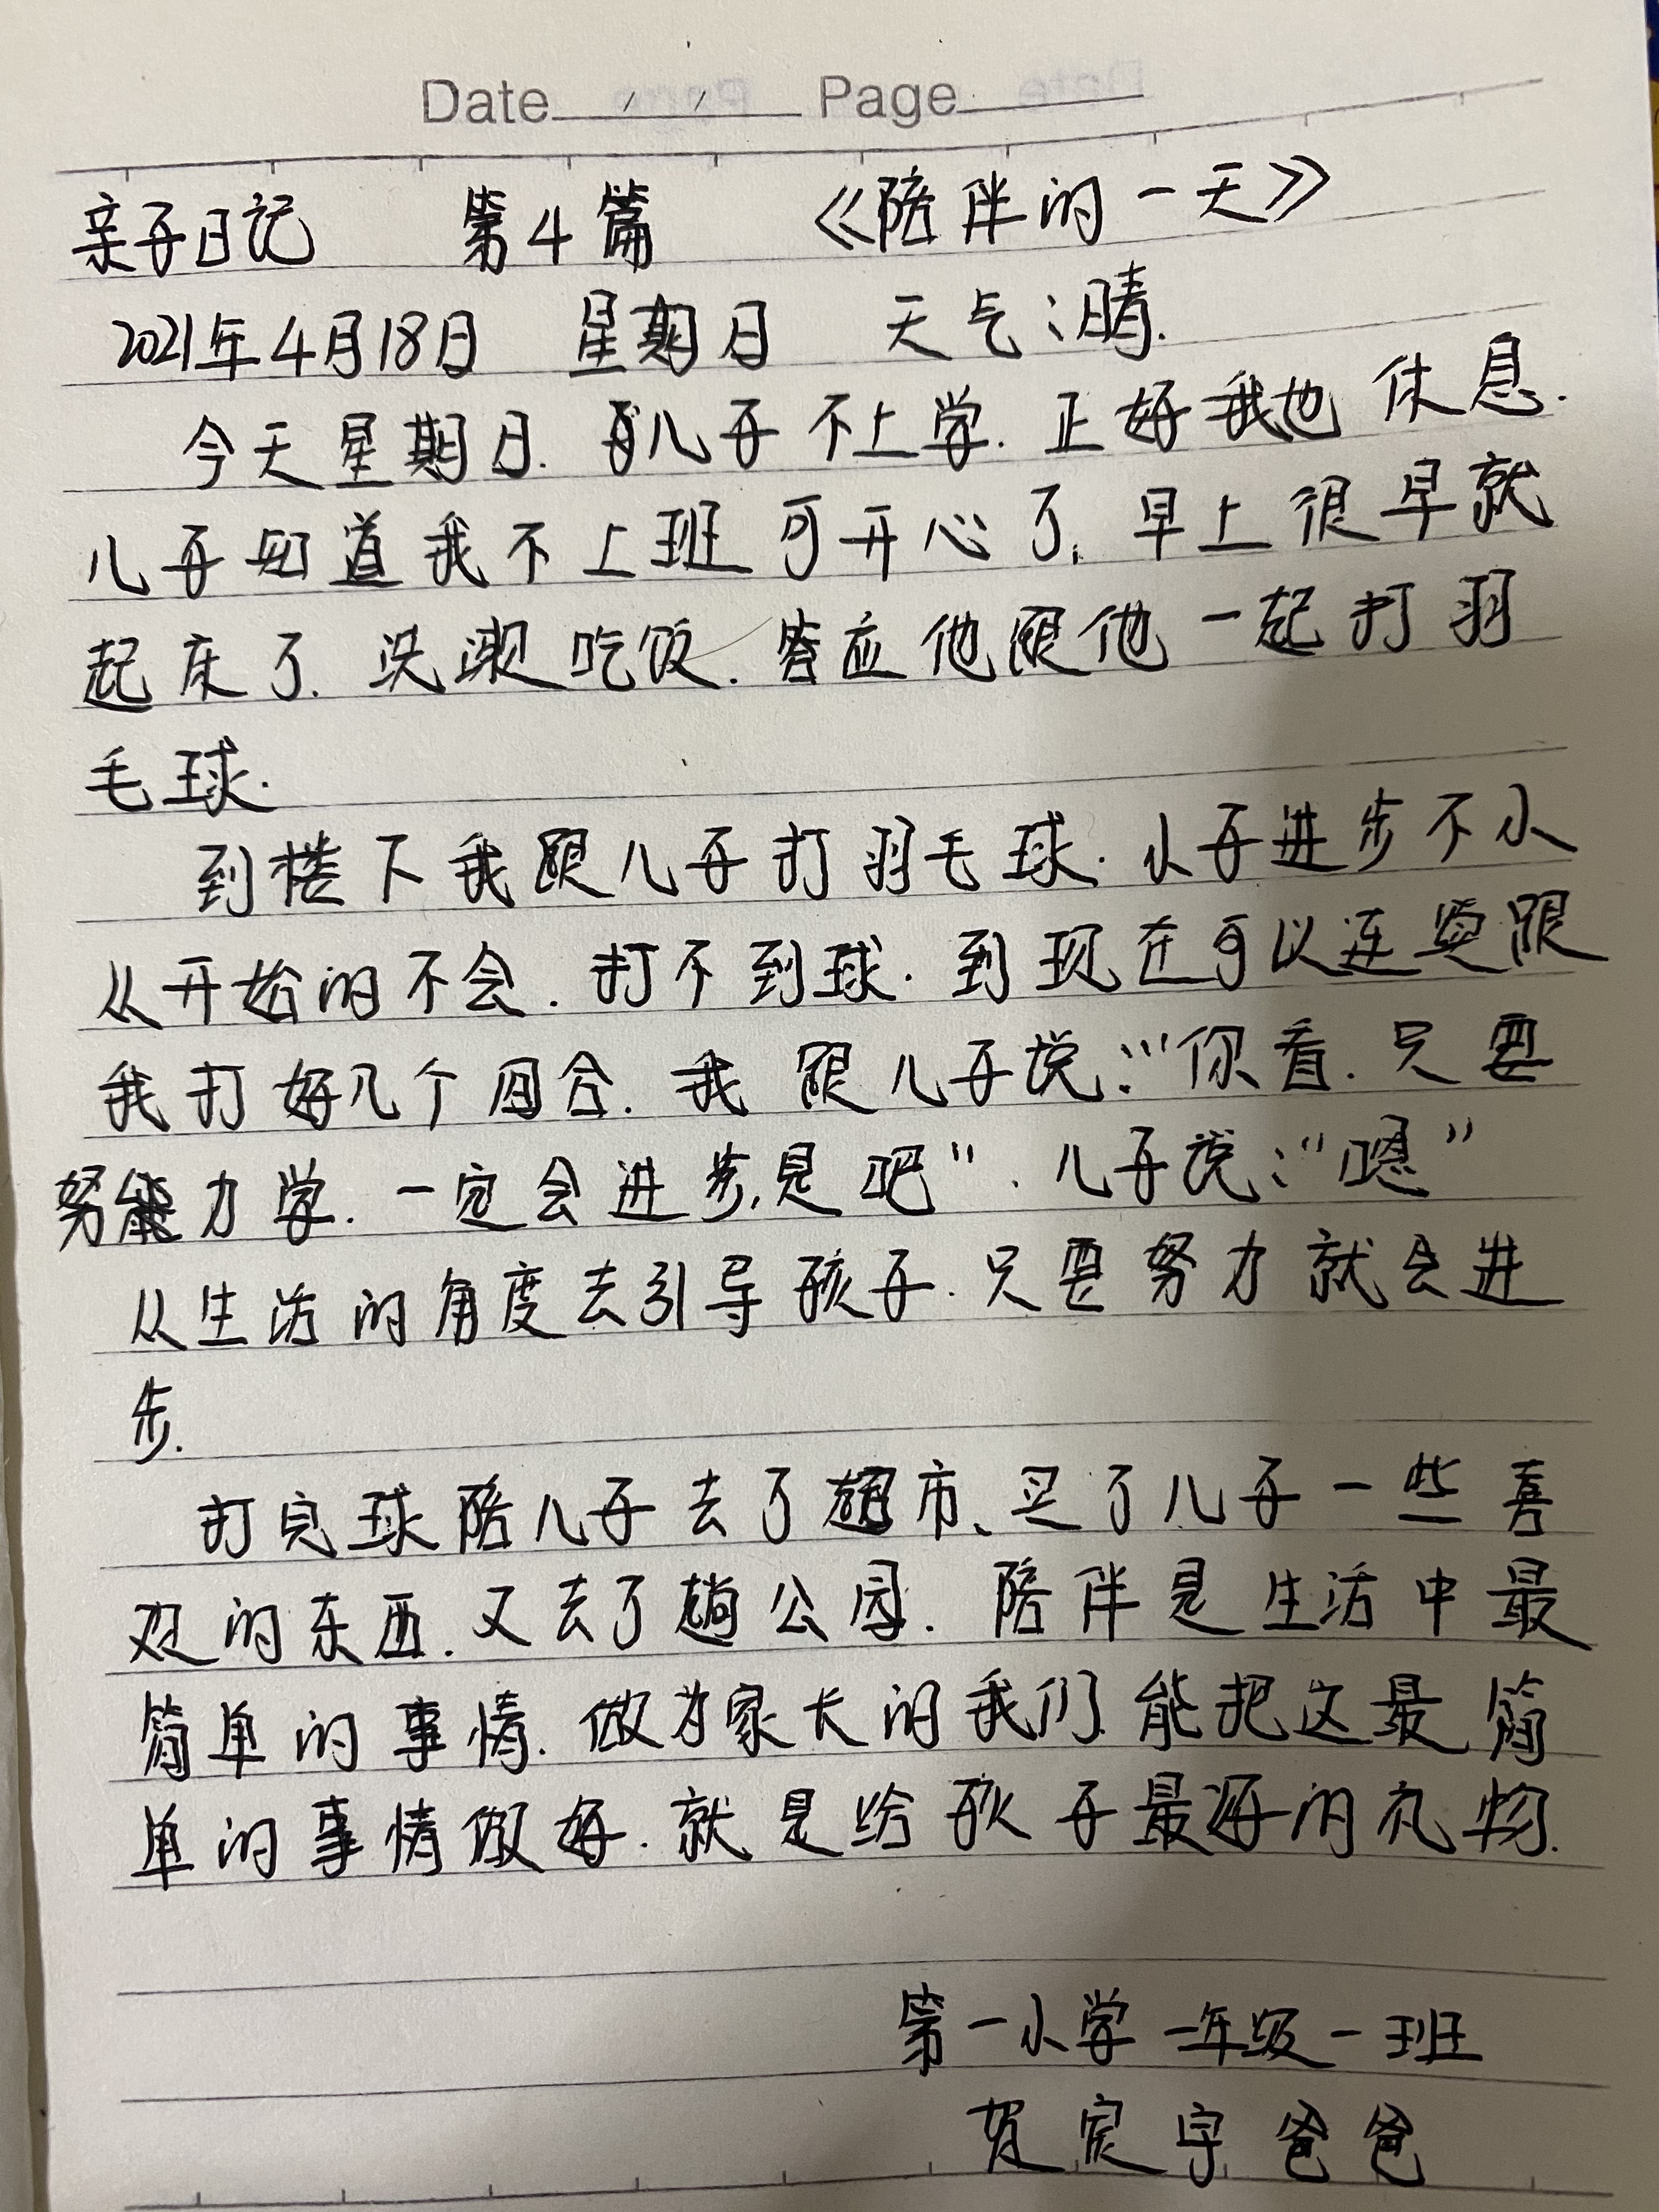 Date / / Page
亲子日记 第4篇 《陪伴的一天》
2021年4月18日 星期日 天气:晴.
今天星期日.儿子不上学.正好我也休息.
儿子知道我不上班可开心了,早上很早就
起床了.洗漱吃饭.答应他跟他一起打羽
毛球.
到楼下我跟儿子打羽毛球.小子进步不小
从开始的不会.打不到球.到现在可以连续跟
我打好几个回合.我跟儿子说:“你看.只要
努力学.一定会进步,是吧”.儿子说:“嗯”
从生活的角度去引导孩子.只要努力就会进
步.
打完球陪儿子去了超市、买了儿子一些喜
欢的东西.又去了趟公园.陪伴是生活中最
简单的事情.做为家长的我们.能把这最简
单的事情做好.就是给孩子最好的礼物.
第一小学 一年级一班
贺 宇爸爸